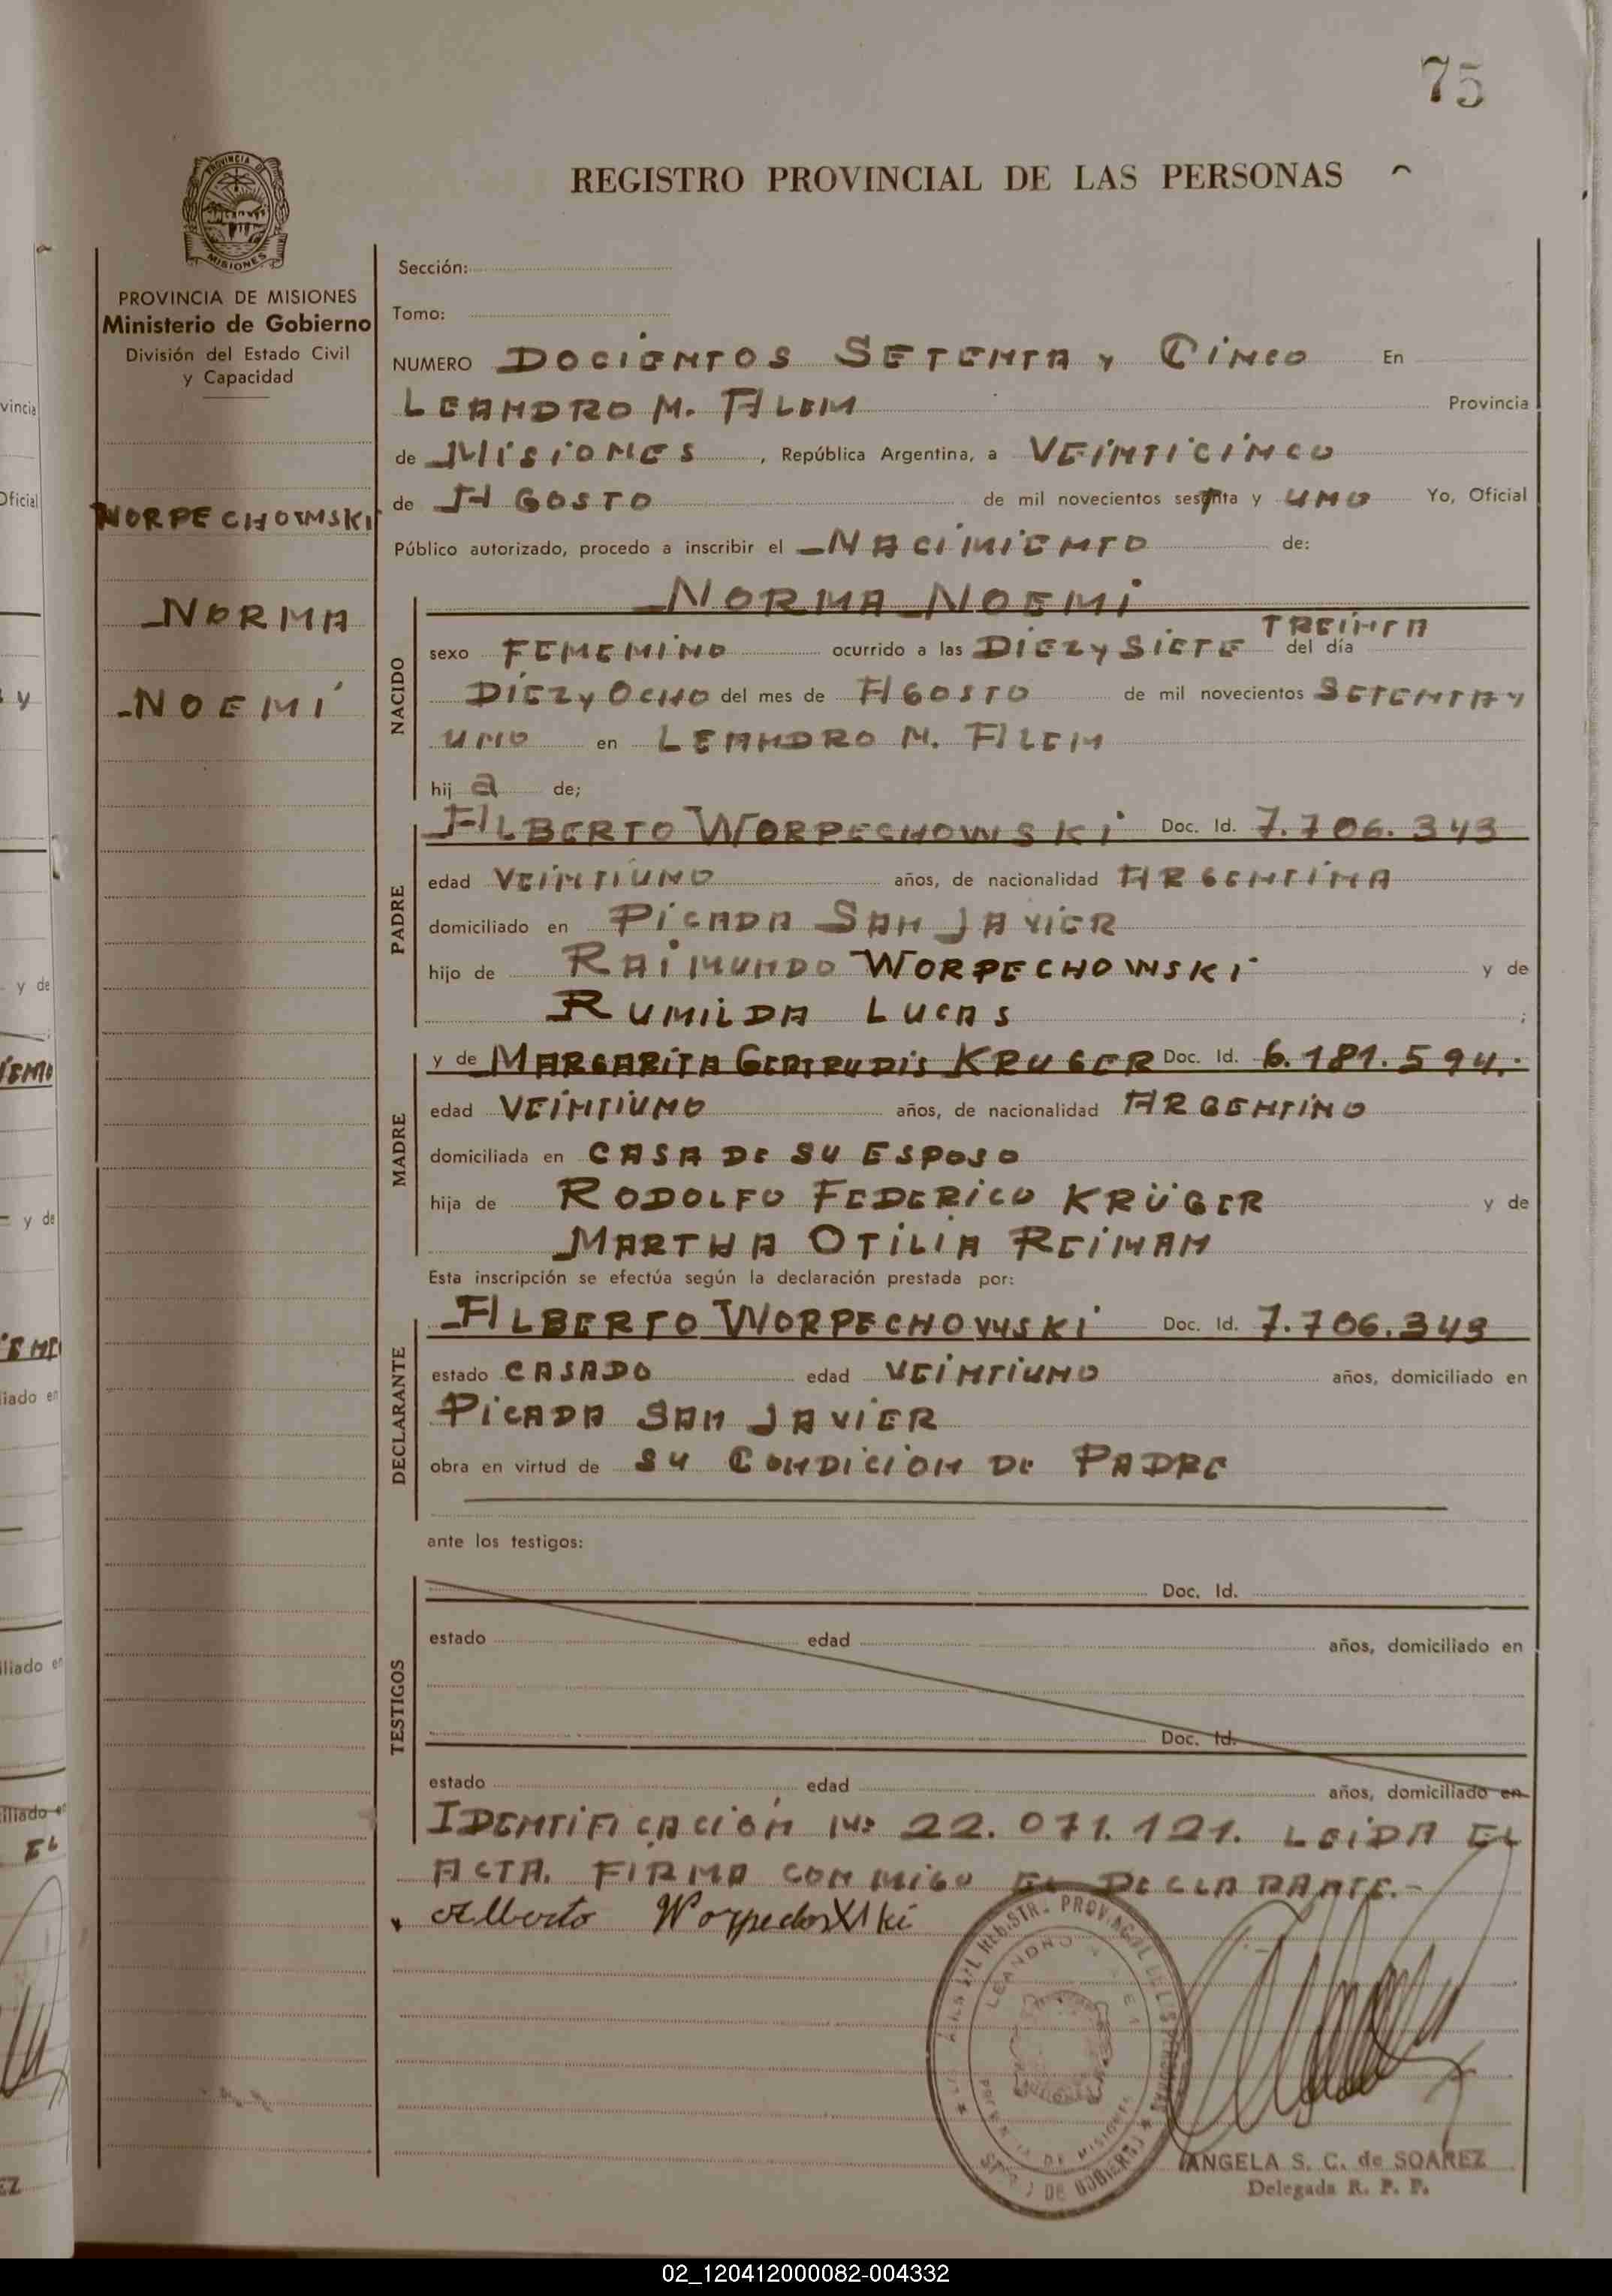 75
REGISTRO PROVINCIAL DE LAS PERSONAS
PROVINCIA DE MISIONES
Ministerio de Gobierno
División del Estado Civil
y Capacidad
WORPECHOWSKI
NORMA
NOEMÍ
Sección:
Tomo:
NUMERO DOCIENTOS SETENTA y CINCO En
LEANDRO N. ALEM Provincia
de MISIONES, República Argentina, a VEINTICINCO
de AGOSTO de mil novecientos sesenta y UNO Yo, Oficial
Público autorizado, procedo a inscribir el NACIMIENTO de:
NORMA NOEMI
NACIDO
TREINTA
sexo FEMENINO ocurrido a las DIEZ y SIETE del día
DIEZ y OCHO del mes de AGOSTO de mil novecientos SETENTA y
UNO en LEANDRO N. ALEM
hij a de;
PADRE
ALBERTO WORPECHOWSKI Doc. Id. 7.706.343
edad VEINTIUNO años, de nacionalidad ARGENTINA
domiciliado en PICADA SAN JAVIER
hijo de RAIMUNDO WORPECHOWSKI y de
RUMILDA LUCAS ;
MADRE
y de MARGARITA GERTRUDIS KRUGER Doc. Id. 6.181.594.-
edad VEINTIUNO años, de nacionalidad ARGENTINO
domiciliada en CASA DE SU ESPOSO
hija de RODOLFO FEDERICO KRÜGER y de
MARTHA OTILIA REIMAN
Esta inscripción se efectúa según la declaración prestada por:
DECLARANTE
ALBERTO WORPECHOWSKI Doc. Id. 7.706.343
estado CASADO edad VEINTIUNO años, domiciliado en
PICADA SAN JAVIER
obra en virtud de SU CONDICION DE PADRE
ante los testigos:
TESTIGOS
Doc. Id.
estado edad años, domiciliado en
Doc. Id.
estado edad años, domiciliado en
IDENTIFICACIÓN Nº 22.071.121. LEIDA EL
ACTA. FIRMA CONMIGO EL DECLARANTE.-
Alberto
ANGELA S. C. de SOAREZ
Delegada R. P. P.
02_120412000082-004332